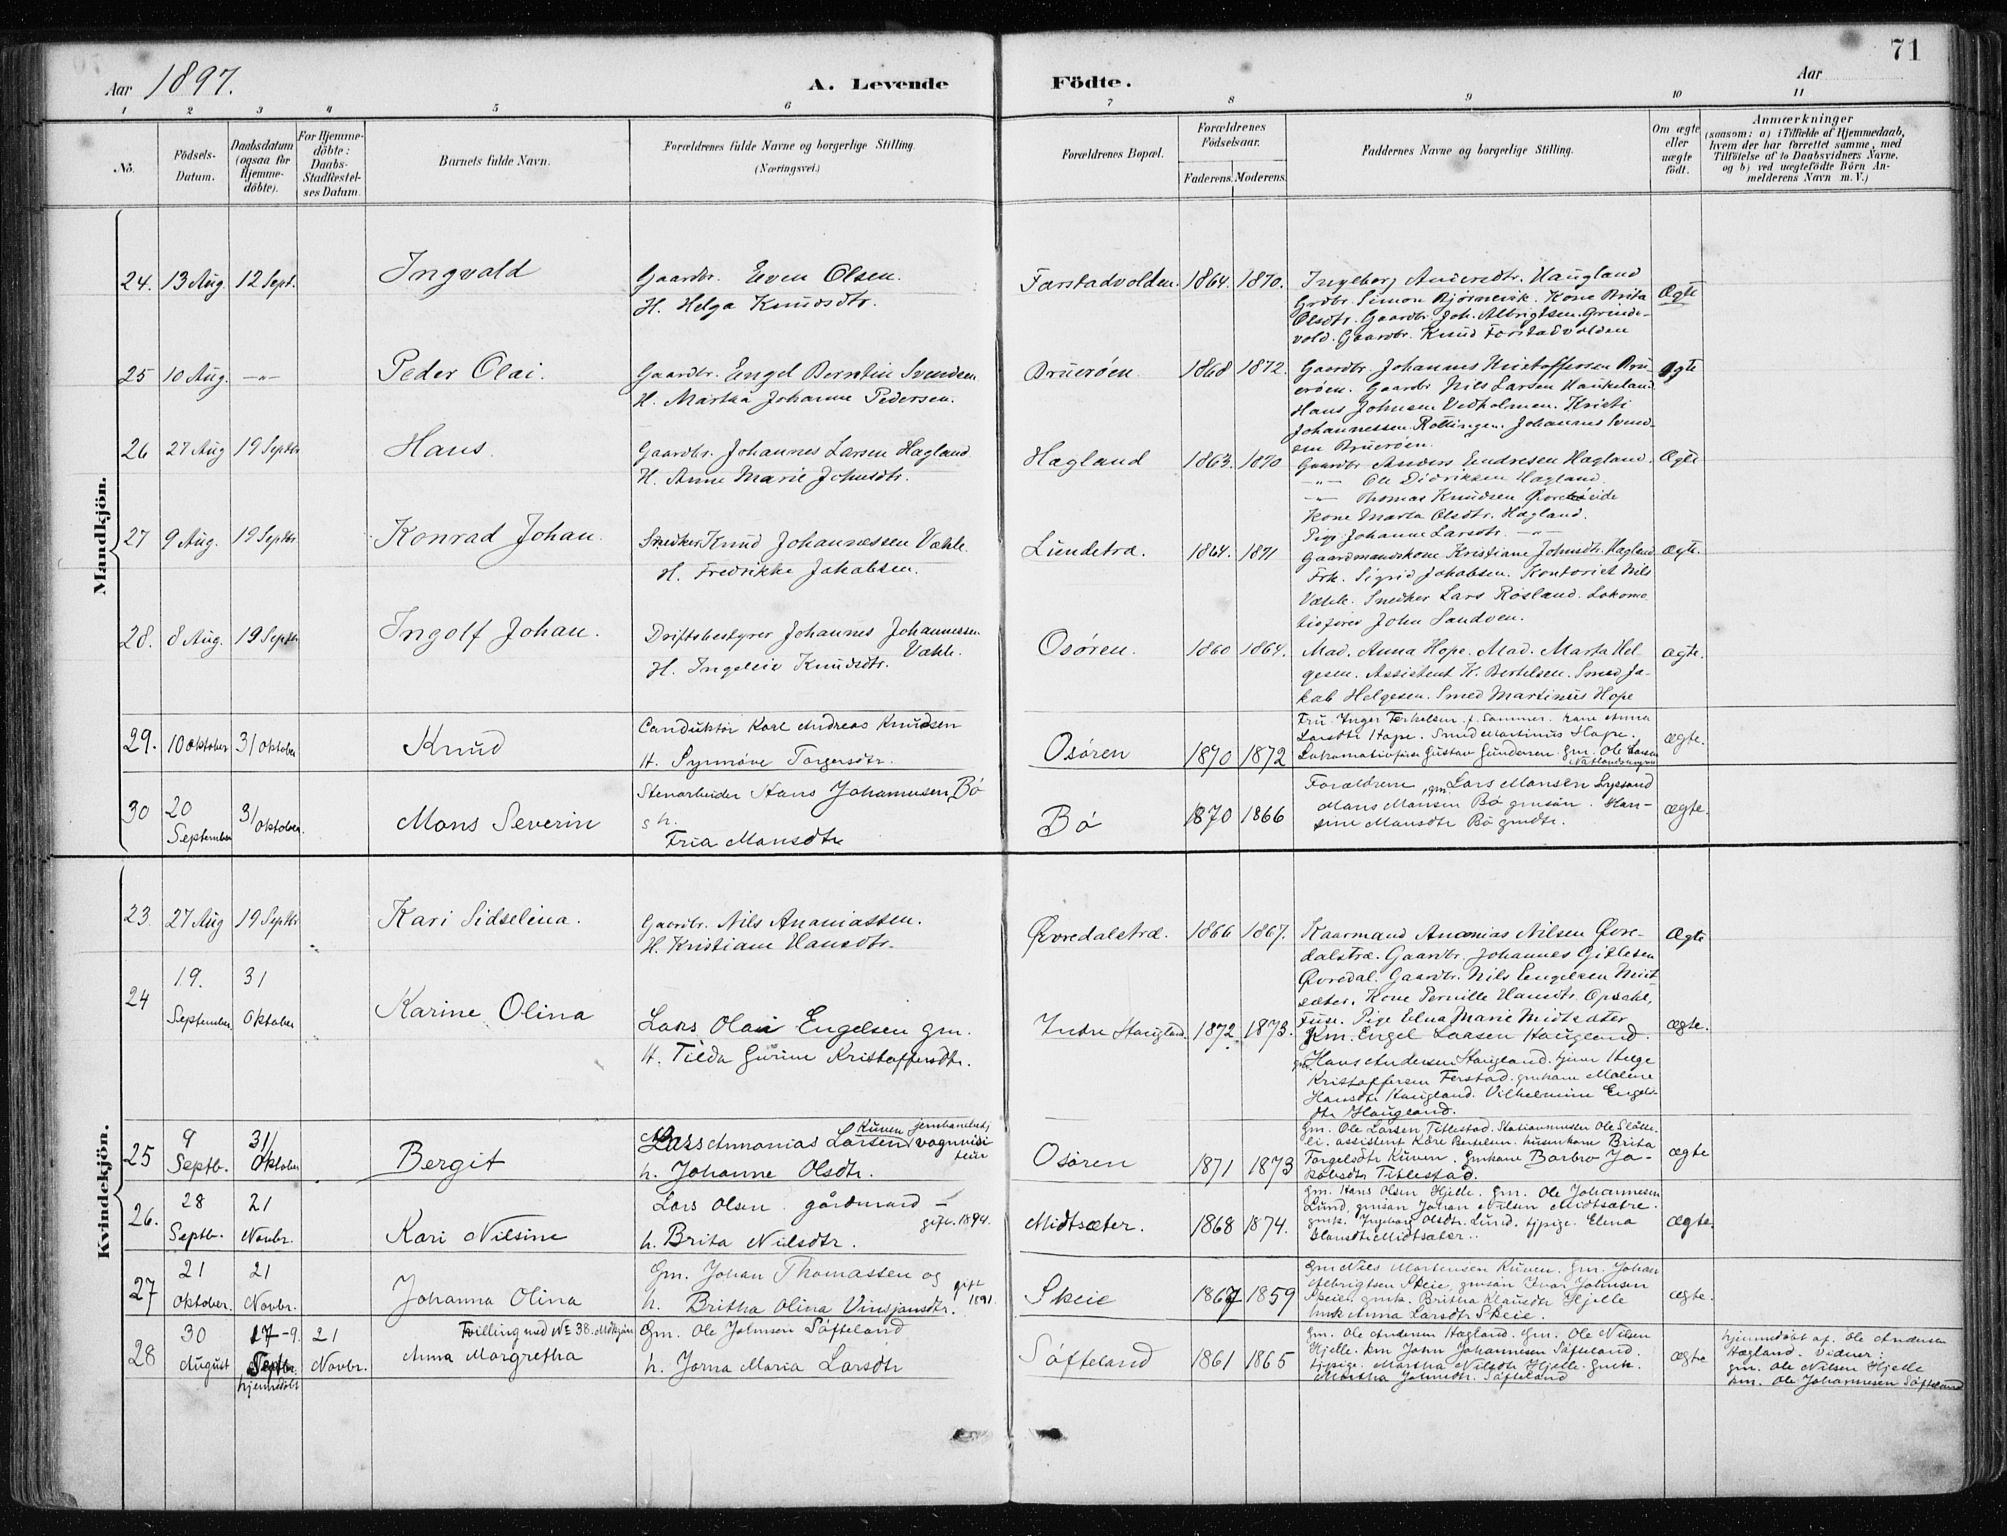 71
Aar 1897.
A. Levende Födte.
Aar
1 2 3 4 5 6 7 8 9 10 11
No.
Födsels-Datum.
Daabsdatum (ogsaa for Hjemme-döbte).
For Hjemme-döbte: Daabs-Stadfæstel-ses Datum.
Barnets fulde Navn.
Forældrenes fulde Navne og borgerlige Stilling. (Næringsvei.)
Forældrenes Bopæl.
Forældrenes Födselsaar.
Faderens. Moderens.
Faddernes Navne og borgerlige Stilling.
Om ægte eller uægte födt.
Anmærkninger
(saasom: a) i Tilfælde af Hjemmedaab, hvem der har forrettet samme, med Tilföielse af to Daabsvidners Navne. og b) ved uægtefödte Börn An-melderens Navn m. V.)
Mandkjön.
24. 13 Aug. 12 Sept.
Ingvald
Gaardbr. Even Olsen.
H. Helga Knudsdtr.
Farstadvolden. 1864. 1870.
Ingeborg Andersdtr. Haugland
Grdbr. Simon Bjørnevik. Kone Brita
Olsdtr. Gaardbr. Joh. Albrigtsen Grinde-
vold. Gaardbr. Knud Forstadvolden
Ægte
25 10 Aug. -"-
Peder Olai.
Gaardbr. Engel Berntin Svendsen
H. Martha Johanne Pedersen.
Bruerøen. 1868 1872.
Gaardbr. Johannes Kristoffersen Bru-
erøen. Gaardbr Nils Larsen Haukeland
Hans Johnsen Vedholmen. Kristi
Johannessen Røttingen. Johannes Svend-
sen Bruerøen.
ægte
26 27 Aug 19 Septbr
Hans.
Gaardbr. Johannes Larsen Hagland
H. Anne Marie Johnsdtr.
Hagland 1863. 1870
Gaardbr Anders Endresen Hagland.
-"- Ole Didriksen Hagland.
-"- Thomas Knudsen Øvrebøeide
Kone Marta Olsdtr. Hagland.
Pige Johanne Larsdtr. -"-
Ægte
27 9 Aug. 19 Septbr
Konrad Johan.
Snedker Knud Johannessen Væhle.
H. Fredrikke Jakobsen.
Lundetræ. 1864. 1871
Gaardmandskone Kristiane Johnsdtr. Hagland
Frk. Sigrid Jakobsen. Kontorist Nils
Væhle. Snedker Lars Røsland. Lokomo
tivfører John Sandven.
ægte.
28. 8 Aug. 19 Septbr
Ingolf Johan.
Driftsbestyrer Johannes Johannessen
Væhle.
H. Ingeleiv Knudsdtr.
Osøren. 1860 1864.
Mad. Anna Hope. Mad. Marta Hel-
gesen. Assistent K. Bertelsen. Smed Ja-
kob Helgesen. Smed Martinus Hope
ægte.
29. 10 oktober 31 oktober
Knud
Conduktør Karl Andreas Knudsen
H. Synnøve Torgersdtr.
Osøren 1870 1872
Fru Inger Terkelsen f. Sommer. kone Anna
Larsdtr Hope. Smed Martinus Hope.
Lokomotivfører Gustav Gundersen. gm. Ole Larsen
ægte.
30 20 September 31 oktober.
Mons Severin
Stenarbeider Hans Johannesen Bø
h.
Fria Monsdtr
Bø 1870 1866
Forældrene, gm. Lars Monsen Lyssand
Mons Monsen Bø gmsøn. Han-
sine Monsdtr Bø gmdtr.
ægte.
Kvindekjön.
23. 27 Aug 19 Septbr
Kari Sidselina.
Gaardbr. Nils Ananiassen.
H. Kristiane Hansdtr.
Øvredalstræ. 1866 1867.
Kaarmand Ananias Nilsen Øvre-
dalstræ. Gaardbr. Johannes Gitlesen
Øvredal. Gaardbr. Nils Engelsen Midt
sæter. Kone Pernille Hansdtr. Opsahl,
Fuse. Pige Elna Marie Midtsæter
Ægte
24 19. September 31 oktober
Karine Olina
Lars Olai Engelsen gm.
H. Tilda Gurine Kristoffersdtr.
Indre Haugland 1872. 1873.
Km. Engel Larsen Haugland.
gm. Hans Andersen Haugland. tjener Helge
Kristoffersen Ferstad. gmkone Malene
Hansdtr Haugland. Vilhelmine Engels-
dtr Haugland.
ægte.
25 9 Septb. 31/ oktober
Bergit
Lars Annanias Larsen Kuven jernbane vognvisiteur
h. Johanne Olsdtr.
Osøren 1871 1873
Gm. Ole Larsen Titlestad. Stationmester Ole Slåtte-
li. assistent Kåre Bertelsen. husmkone Brita
Torgelsdtr Kuven. Gmkone Barbro Ja-
kobsdtr Titlestad.
ægte
26. 28 Septb. 21 Novbr.
Kari Nilsine
Lars Olsen gårdmand –
h. Brita Nilsdtr. gift. 1894.
Midtsæter. 1868 1874.
gm. Hans Olsen Hjelle. gm. Ole Johannesen
Lund. gmsøn Johan Nilsen Midtsætre.
gmk. Ingeborg Olsdtr. Lund. tjpige Elena
Hansdtr Midtsæter.
ægte.
27 21 oktober. 21 Novbr.
Johanna Olina
Gm. Johan Thomassen og
h. Britha Olina Vinsjansdtr. gift 1891.
Skeie 1867 1859
Gm Niels Mortensen Kuven. Gm. Johan
Albrigtsen Skeie, gmsøn Ivar Johnsen
Skeie, gmk. Britha Klausdtr Hjelle
hmk Anna Larsdtr Skeie.
ægte.
28 30 August 17-9. Septbr. hjemmedøbt 21 Novbr.
Tvilling med No 38. Mdkjøn
Anna Margretha
Gm. Ole Johnsen Søfteland
h. Jorna Maria Larsdtr
Søfteland 1861 1865
Gm. Ole Andersen Hagland. Gm. Ole Nilsen
Hjelle. km John Johannesen Søfteland.
tjpige. Martha Nilsdtr Hjelle. gmk.
Martha Johnsdtr. Søfteland
ægte
hjemmedøbt af. Ole Andersen
Hægland. Vidner:
gm. Ole Nilsen Hjelle
km. Ole Johannesen Søfteland